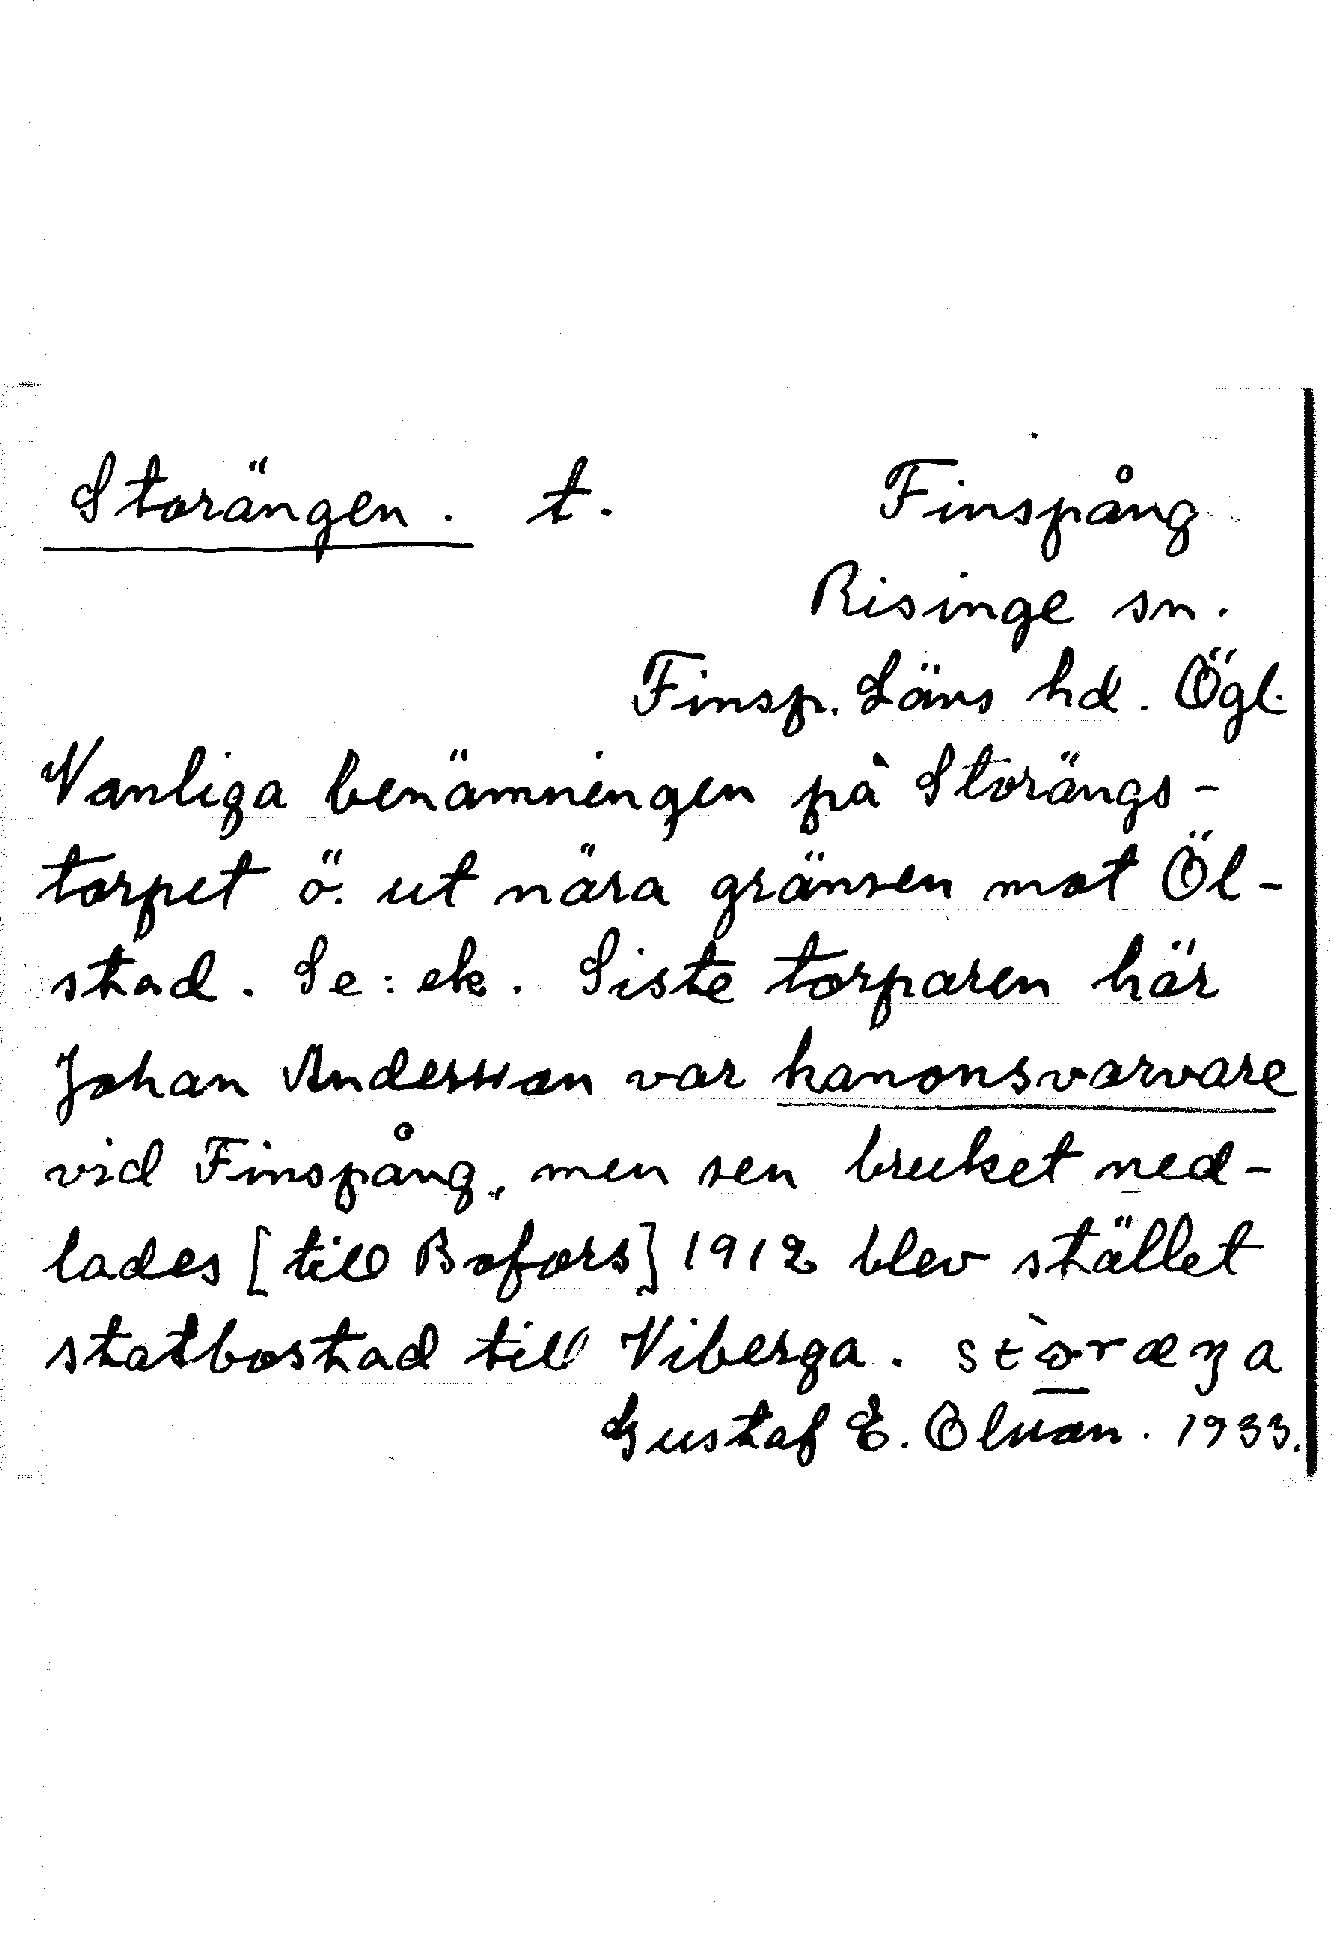 Storängen. t. Finspång
Risinge sn.
Finsp. Läns hd. Ögl.
Vanliga benämningen på Storängs-
torpet ö. ut nära gränsen mot Öl-
stad. Se: ek. Siste torparen här
Johan Andersson var kanonsvarvare
vid Finspång, men sen bruket ned-
lades [till Bofors] 1912 blev stället
statbostad till Viberga.
Gustaf E. Olsson. 1933.